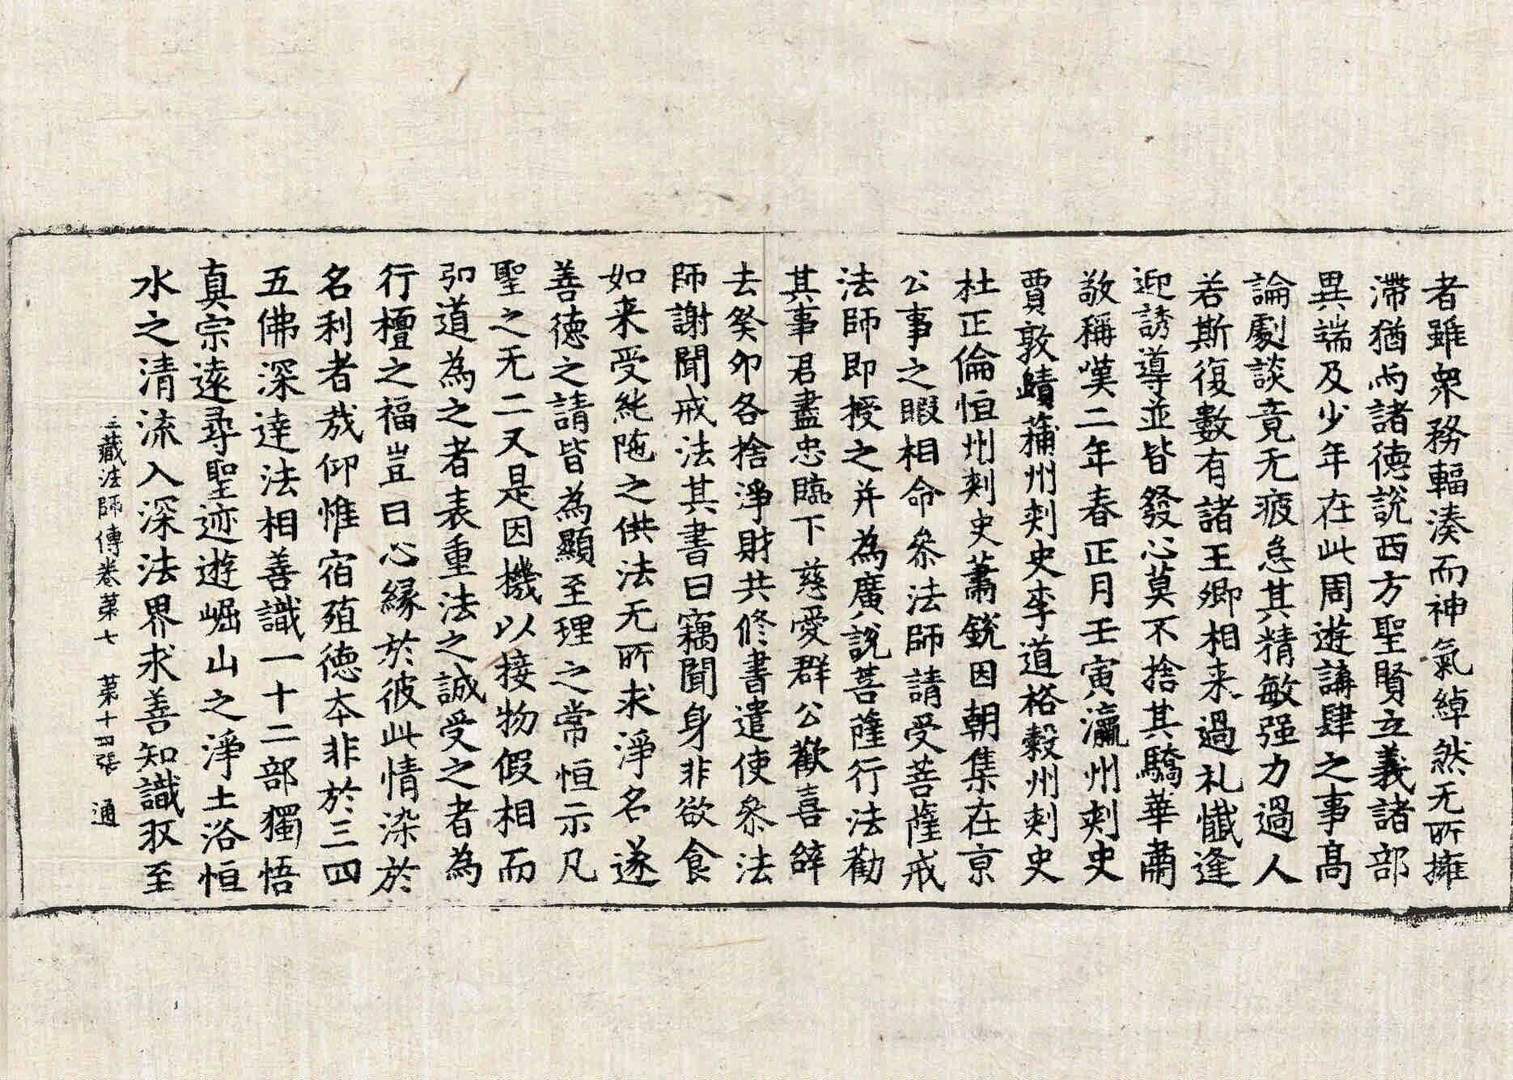 者雖衆務輻湊而神氣綽然无所擁
滯猶与諸德說西方聖賢立義諸部
異端及少年在此周遊講肆之事高
論劇談竟无疲怠其精敏强力過人
若斯復數有諸王卿相来過礼懺逢
迎誘導並皆發心莫不捨其驕華肅
敬稱嘆二年春正月壬寅瀛州刺史
賈敦賾蒲州刺史李道裕穀州刺史
杜正倫恒州刺史蕭銳因朝集在京
公事之暇相命叅法師請受菩薩戒
法師即授之并為廣說菩薩行法勸
其事君盡忠臨下慈愛群公歡喜辝
去癸卯各捨淨財共修書遣使叅法
師謝聞戒法其書曰竊聞身非欲食
如来受純陁之供法无所求淨名遂
善德之請皆為顯至理之常恒示凡
聖之无二又是因機以接物假相而
引道為之者表重法之誠受之者為
行檀之福豈曰心縁於彼此情染於
名利者㢤仰惟宿殖德本非於三四
五佛深達法相善識一十二部獨悟
真宗遠尋聖迹遊崛山之淨土浴恒
水之清流入深法界求善知識収至
三藏法師傳卷苐七　苐十四張　通